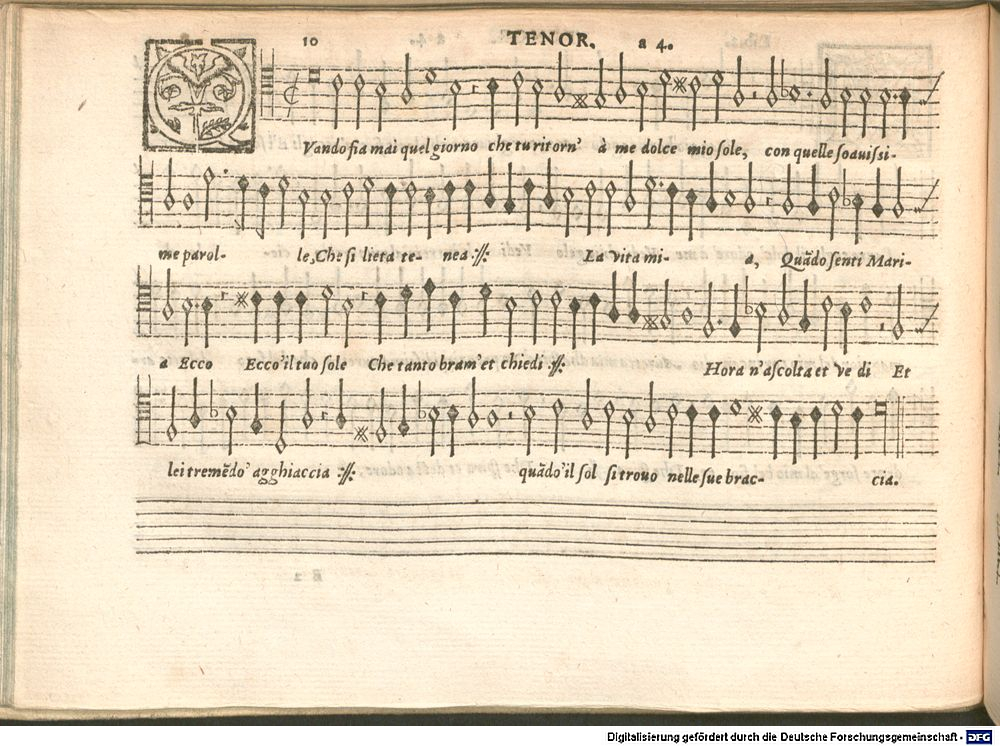 10 TENOR. a 4.
QVando fia mai quel giorno che tu ritorn' à me dolce mio sole, con quelle soauissi-
me parol- le, Che si lieta te- nea :||: La vita mi- a, Quãdo senti Mari-
a Ecco Ecco'il tuo sole Che tanto bram' et chiedi :||: Hora n'ascolta et ve di Et
lei tremẽdo' agghiaccia :||: quãdo'il sol si trouo nelle sue brac- cia.
Digitalisierung gefördert durch die Deutsche Forschungsgemeinschaft - DFG